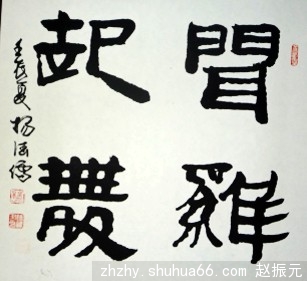 聞雞
起舞
壬辰夏 杨
zhzhy.shuhua66.com 赵振元